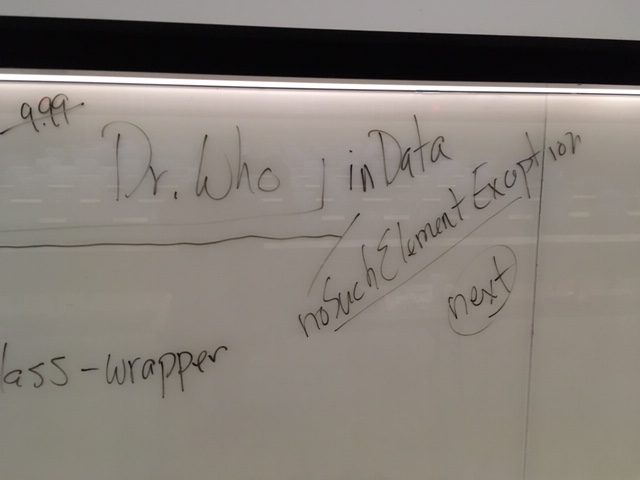 9.99
Dr. Who
inData
noSuchElementException
next
lass-wrapper